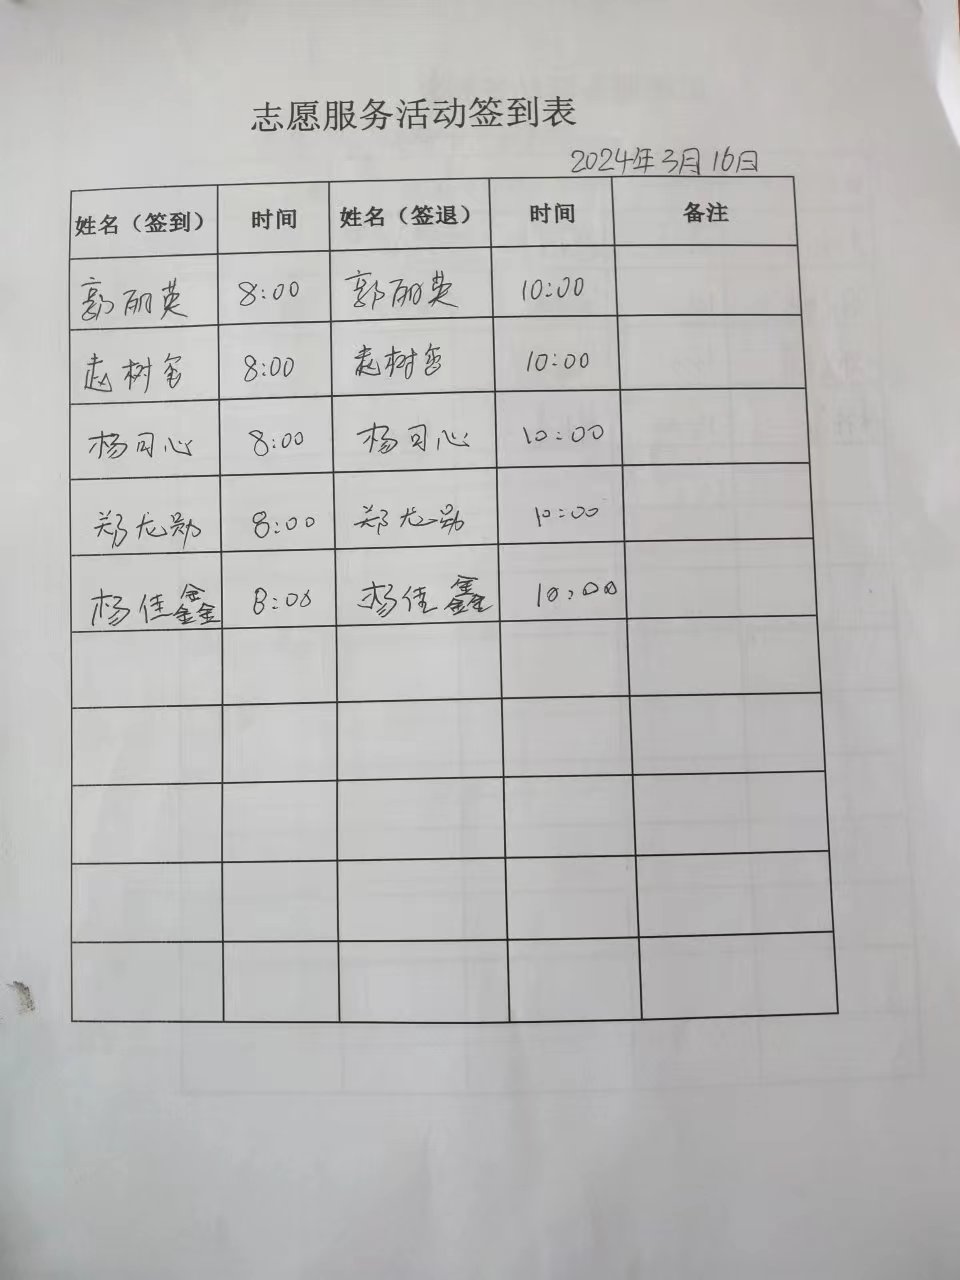 志愿服务活动签到表
2024年3月16日
姓名（签到） 时间 姓名（签退） 时间 备注
郭丽英 8:00 郭丽英 10:00
赵树 8:00 赵树 10:00
杨可心 8:00 杨可心 10:00
郑龙勋 8:00 郑龙勋 10:00
杨佳鑫 8:00 杨佳鑫 10:00